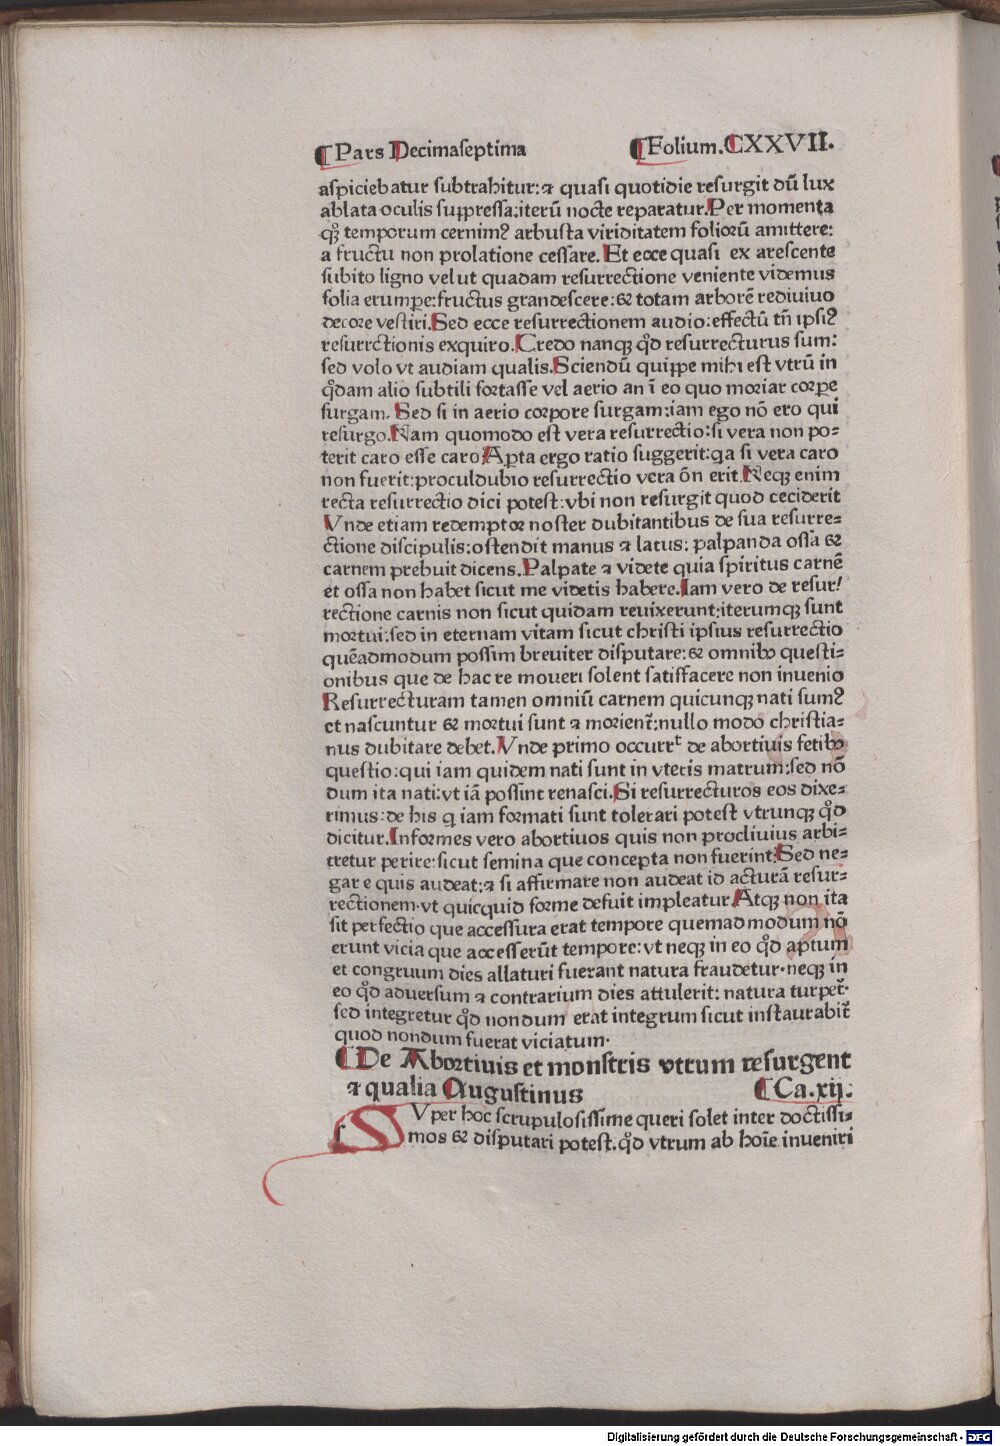 ¶Pars Decimaſeptima ¶Folium.CXXVII.
aſpiciebatur ſubtrahitur:⁊ quaſi quotidie reſurgit dū lux
ablata oculis ſuppreſſa:iterū nocte reparatur.Per momenta
qꝫ temporum cernimꝰ arbuſta viriditatem folioꝛū amittere:
a fructu non prolatione ceſſare. Et ecce quaſi ex areſcente
ſubito ligno velut quadam reſurrectione veniente videmus
folia erumpe:fructus grandeſcere:⁊ totam arborē rediuiuo
decoꝛe veſtiri.Sed ecce reſurrectionem audio:effectū tn̄ ipſiꝰ
reſurrctionis exquiro.Credo nanqꝫ qd̓ reſurrecturus ſum:
ſed volo vt audiam qualis.Sciendū quippe mihi eſt vtrū in
qd̓am alio ſubtili foꝛtaſſe vel aerio an ī eo quo moꝛiar coꝛpe
ſurgam. Sed ſi in aerio coꝛpore ſurgam:iam ego nō ero qui
reſurgo.Nam quomodo eſt vera reſurrectio:ſi vera non po⸗
terit caro eſſe caro Aꝑta ergo ratio ſuggerit:qa ſi vera caro
non fuerit:proculdubio reſurrectio vera ōn erit.Neqꝫ enim
recta reſurrectio dici poteſt:vbi non reſurgit quod ceciderit
Vnde etiam redemptoꝛ noſter dubitantibus de ſua reſurre⸗
ctione diſcipulis:oſtendit manus ⁊ latus: palpanda oſſa ⁊
carnem prebuit dicens.Palpate ⁊ videte quia ſpiritus carnē
et oſſa non habet ſicut me videtis habere.Iam vero de reſur/
rectione carnis non ſicut quidam reuixerunt:iterumqꝫ ſunt
moꝛtui:ſed in eternam vitam ſicut chriſti ipſius reſurrectio
quēadmodum poſſim breuiter diſputare:⁊ omnibꝰ queſti⸗
onibus que de hac re moueri ſolent ſatiſfacere non inuenio
Reſurrecturam tamen omniū carnem quicunqꝫ nati ſumꝰ
et naſcuntur ⁊ moꝛtui ſunt ⁊ moꝛient̄:nullo modo chriſtia⸗
nus dubitare debet.Vnde primo occurrᵗ de aboꝛtiuis fetibꝰ
queſtio:qui iam quidem nati ſunt in vteris matrum:ſed nō
dum ita nati:vt iā poſſint renaſci.Si reſurrecturos eos dixe⸗
rimus:de his q iam foꝛmati ſunt tolerari poteſt vtrunqꝫ qd̓
dicitur.Infoꝛmes vero aboꝛtiuos quis non procliuius arbi⸗
tretur perire:ſicut ſemina que concepta non fuerint:Sed ne⸗
gare quis audeat:⁊ ſi affirmare non audeat id acturā reſur⸗
rectionem·vt quicquid foꝛme defuit impleatur.Atqꝫ non ita
ſit perfectio que acceſſura erat tempore quemadmodum nō
erunt vicia que acceſſerūt tempore:vt neqꝫ in eo qd̓ aptum
et congruum dies allaturi fuerant natura fraudetur·neqꝫ in
eo qd̓ aduerſum ⁊ contrarium dies attulerit: natura turpet̄·
ſed integretur qd̓ nondum erat integrum ſicut inſtaurabit̄
quod nondum fuerat viciatum·
¶De Aboꝛtiuis et monſtris vtrum reſurgent
⁊ qualia Auguſtinus ¶Ca.xij:
SVper hoc ſcrupuloſiſſime queri ſolet inter doctiſſi⸗
mos ⁊ diſputari poteſt.qd̓ vtrum ab hoīe inueniri
Digitalisierung gefördert durch die Deutsche Forschungsgemeinschaft - DFG